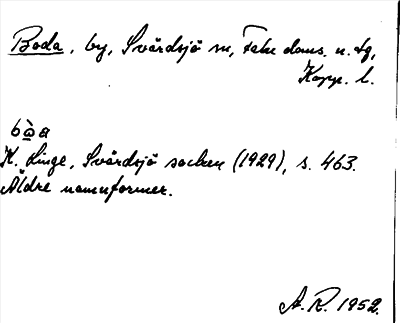 Boda, by, Svärdsjö sn, Falu doms. n. tg,
Kopp. l.
bòa
K. Linge, Svärdsjö socken (1929), s. 463.
Äldre namnformer.
A. R. 1952.